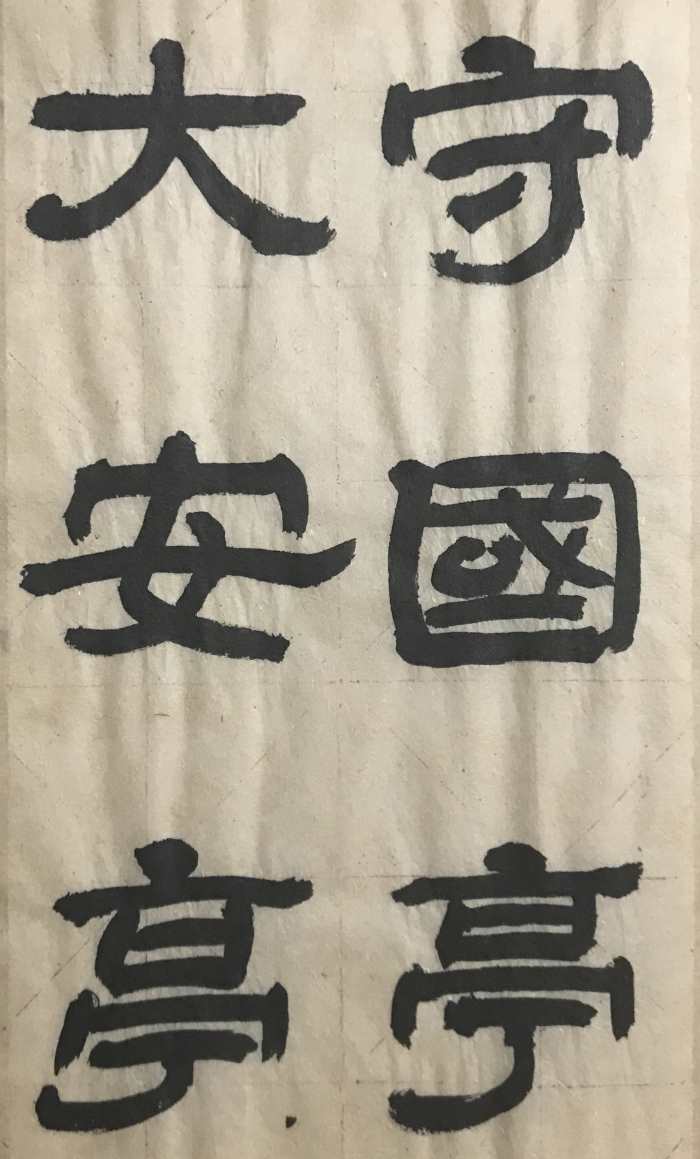 守國亭
大安亭